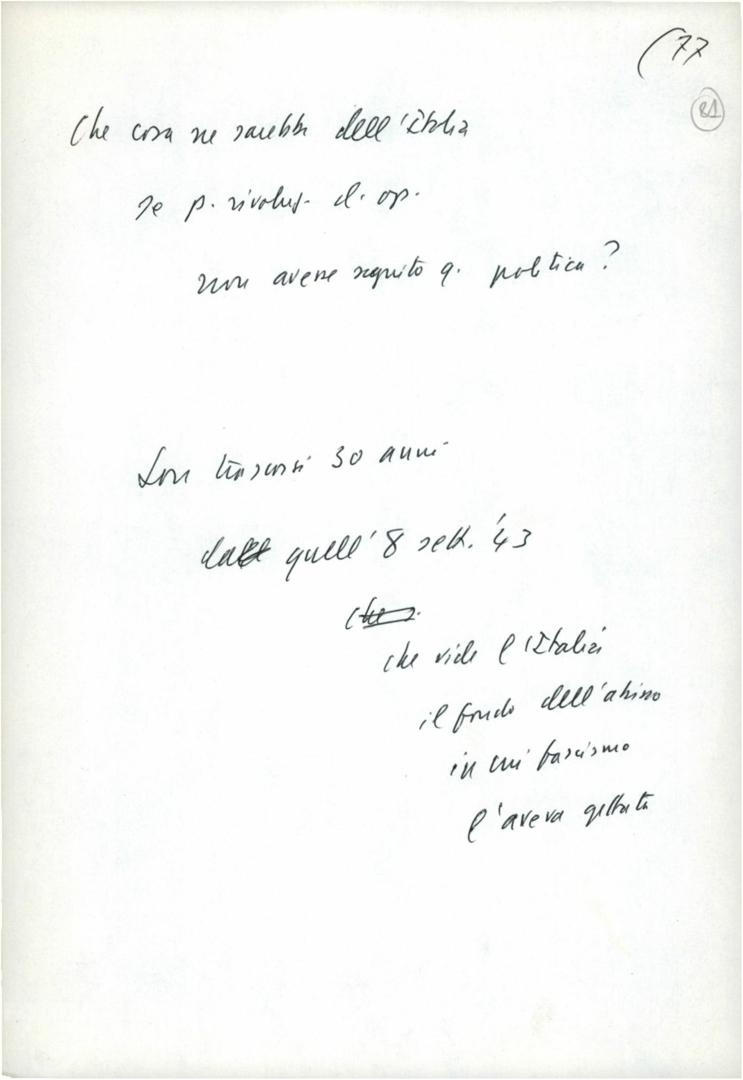 (77
81
Che cosa ne sarebbe dell'Italia
se p. rivoluz. d. op.
non avesse seguito q. politica?
Son trascorsi 30 anni
quell' 8 sett. '43
che vide l'Italia
il fondo dell'abisso
in cui fascismo
l'aveva gettata